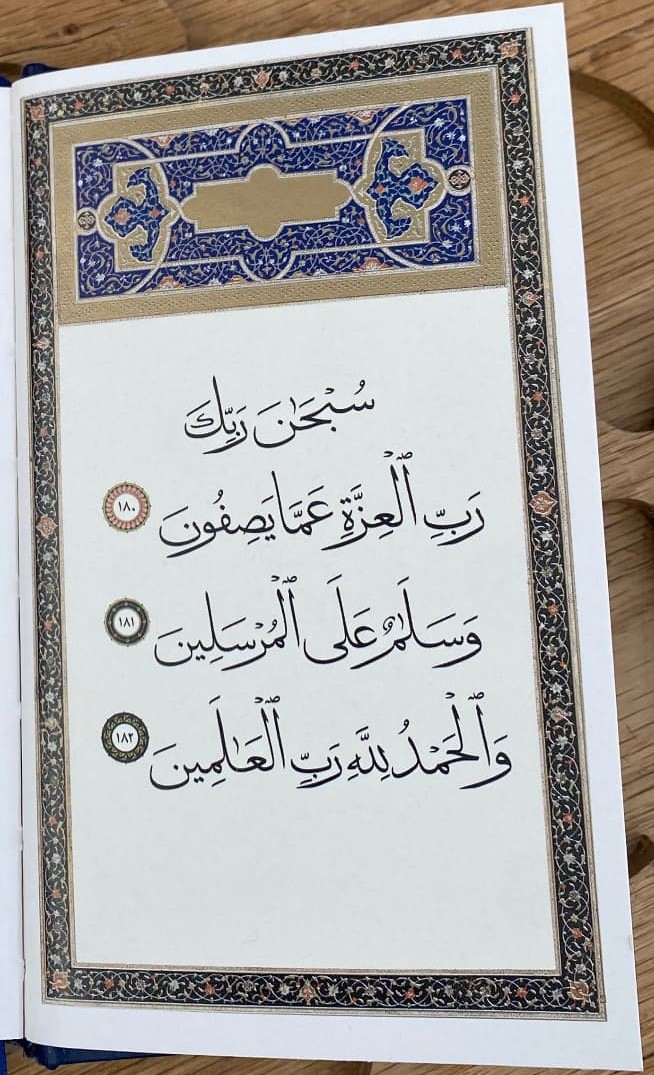 سُبْحَٰنَ رَبِّكَ
رَبِّ ٱلْعِزَّةِ عَمَّا يَصِفُونَ ١٨٠
وَسَلَٰمٌ عَلَى ٱلْمُرْسَلِينَ ١٨١
وَٱلْحَمْدُ لِلَّهِ رَبِّ ٱلْعَٰلَمِينَ ١٨٢